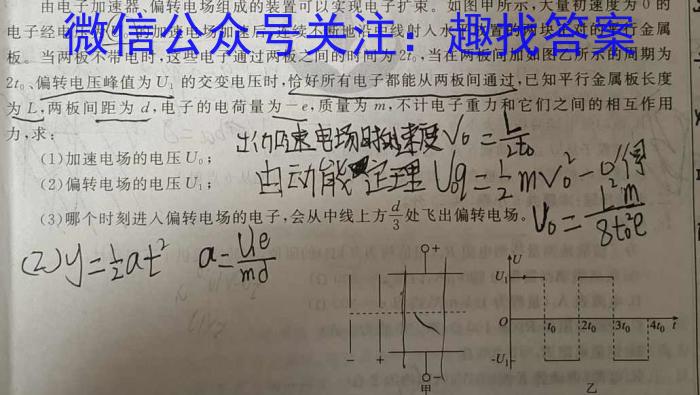 由电子加速器、偏转电场组成的装置可以实现电子扩束。如图甲所示,大量初速度为0的
电子经电压
微信公众号关注：趣找答案
板。当两板不带电时,这些电子通过两板之间的时间为2t₀,当在两板间加如图乙所示的周期为
2t₀、偏转电压峰值为U₁的交变电压时,恰好所有电子都能从两板间通过,已知平行金属板长度
为L,两板间距为d,电子的电荷量为-e,质量为m,不计电子重力和它们之间的相互作用
力,求:
(1)加速电场的电压U₀;
速电场时的速度V₀=L/2t₀
(2)偏转电场的电压U₁;
由动能定理U₀q=½mv₀²-0得
(3)哪个时刻进入偏转电场的电子,会从中线上方d/3处飞出偏转电场。
U₀=L²m/8t₀²e
(2)y=½at² a=Ue/md
+
U
U₁
O t₀ 2t₀ 3t₀ 4t₀ t
- +
-U₁
-
甲 乙